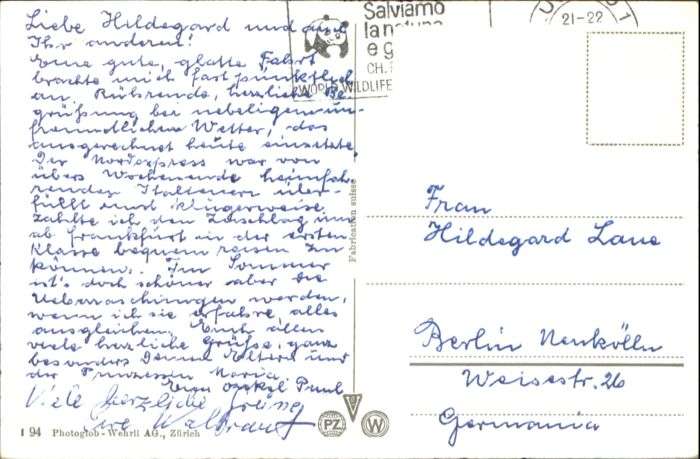 Liebe Hildegard und auch
Ihr anderen!
Eine gute, glatte Fahrt
brachte mich fast pünktlich
an. Rührende, herzliche Be-
grüßung bei nebeligem un-
freundlichem Wetter, das
ausgerechnet heute einsetzte.
Der Nordexpress war von
übers Wochenende heimfah-
renden Italienern über-
füllt und klugerweise
zahlte ich den Zuschlag um
ab Frankfurt in der ersten
Klasse bequem reisen zu
können. Im Sommer
ist's doch schöner aber die
Ueberraschungen werden,
wenn ich sie erfahre, alles
ausgleichen. Euch allen
viele herzliche Grüße, ganz
besonders Deinen Eltern und
der Prinzessin Maria
Euer Onkel Paul
Viele herzliche Grüße
Eure Waltraut
Salviamo
la natura
e
CH.
WORLD WILDLIFE
21-22
1
Fabrication suisse
Frau
Hildegard Lane
Berlin Neukölln
Weisestr. 26
Germania
I 94 Photoglob-Wehrli AG., Zürich
PZ
W